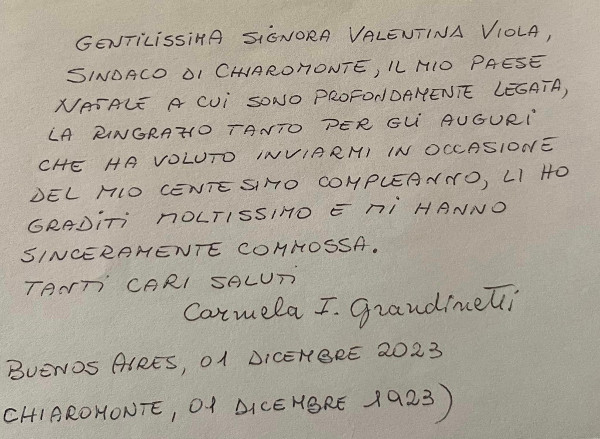 GENTILISSIMA SIGNORA VALENTINA VIOLA,
SINDACO DI CHIAROMONTE, IL MIO PAESE
NATALE A CUI SONO PROFONDAMENTE LEGATA,
LA RINGRAZIO TANTO PER GLI AUGURI
CHE HA VOLUTO INVIARMI IN OCCASIONE
DEL MIO CENTESIMO COMPLEANNO, LI HO
GRADITI MOLTISSIMO E MI HANNO
SINCERAMENTE COMMOSSA.
TANTI CARI SALUTI
Carmela I. Grandinetti
BUENOS AIRES, 01 DICEMBRE 2023
CHIAROMONTE, 01 DICEMBRE 1923)